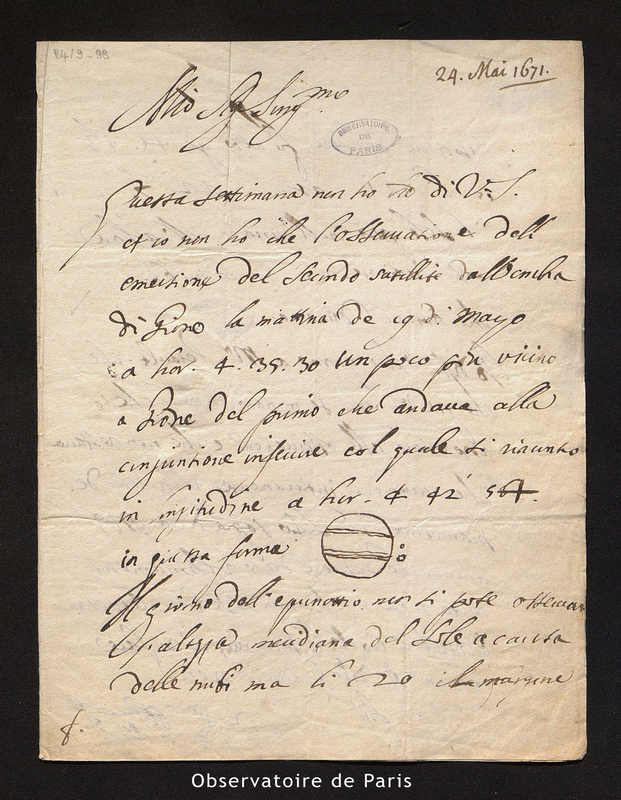 B4/9-98
24. Mai 1671.
OBSERVATOIRE
DE
PARIS
Questa settimana non ho di V. S.
et io non ho che l'osservatione dell
emersione del secondo satellite dall'ombra
di Giove la matina de 19 di Mayo
a hor. 4. 35. 30 un poco più vicino
a Giove del primo che andava alla
congiuntione inferiore col quale si
in longitudine a hor. 4 42
in questa forma
Il giorno dell' non si potè osservar
l'altezza meridiana del Sole a causa
delle nubi ma li 20 il margine
f.
Observatoire de Paris